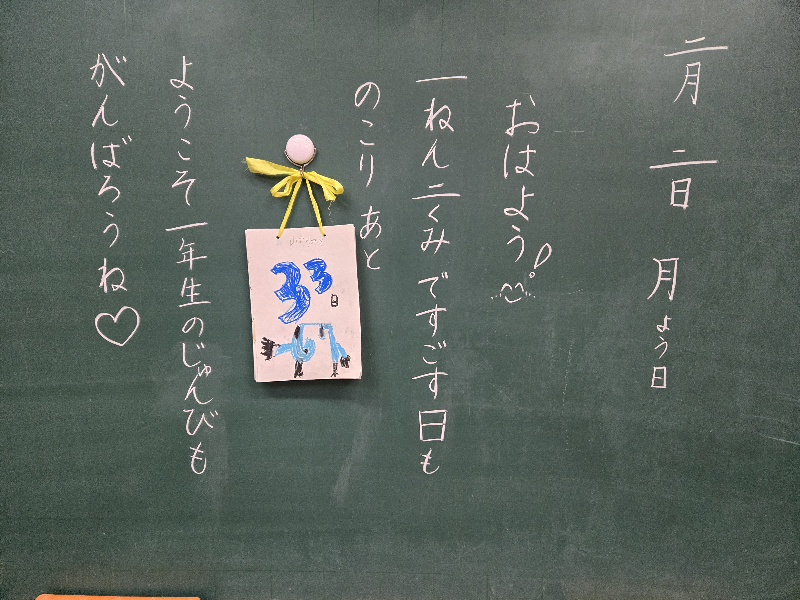 二月二日月よう日
おはよう!
一ねん二くみですごす日も
のこりあと
33日
ようこそ一年生のじゅんびも
がんばろうね♡